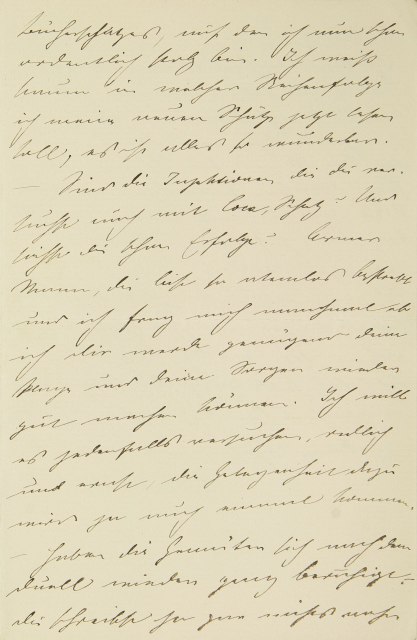 Bücherschatzes, auf den ich nun schon
ordentlich stolz bin. Ich weiß
kaum in welcher Reihenfolge
ich meine neuen Schätze jetzt lesen
soll, es ist alles so wunderbar.
— Sind die Injektionen die du
auch mit Coca, Schatz? Und
die schon Erfolge? Armer
Mann, du bist so atemlos
und ich frag mich manchmal ob
ich dir werde genügend deine
Plage und deine Sorgen wieder
gut machen können. Ich will
es jedenfalls versuchen, redlich
und ernst, die Gelegenheit dazu
wird ja auch einmal kommen.
— Haben die Gemüter sich nach dem
Duell wieder ganz beruhigt —
du schreibst ja gar nichts mehr